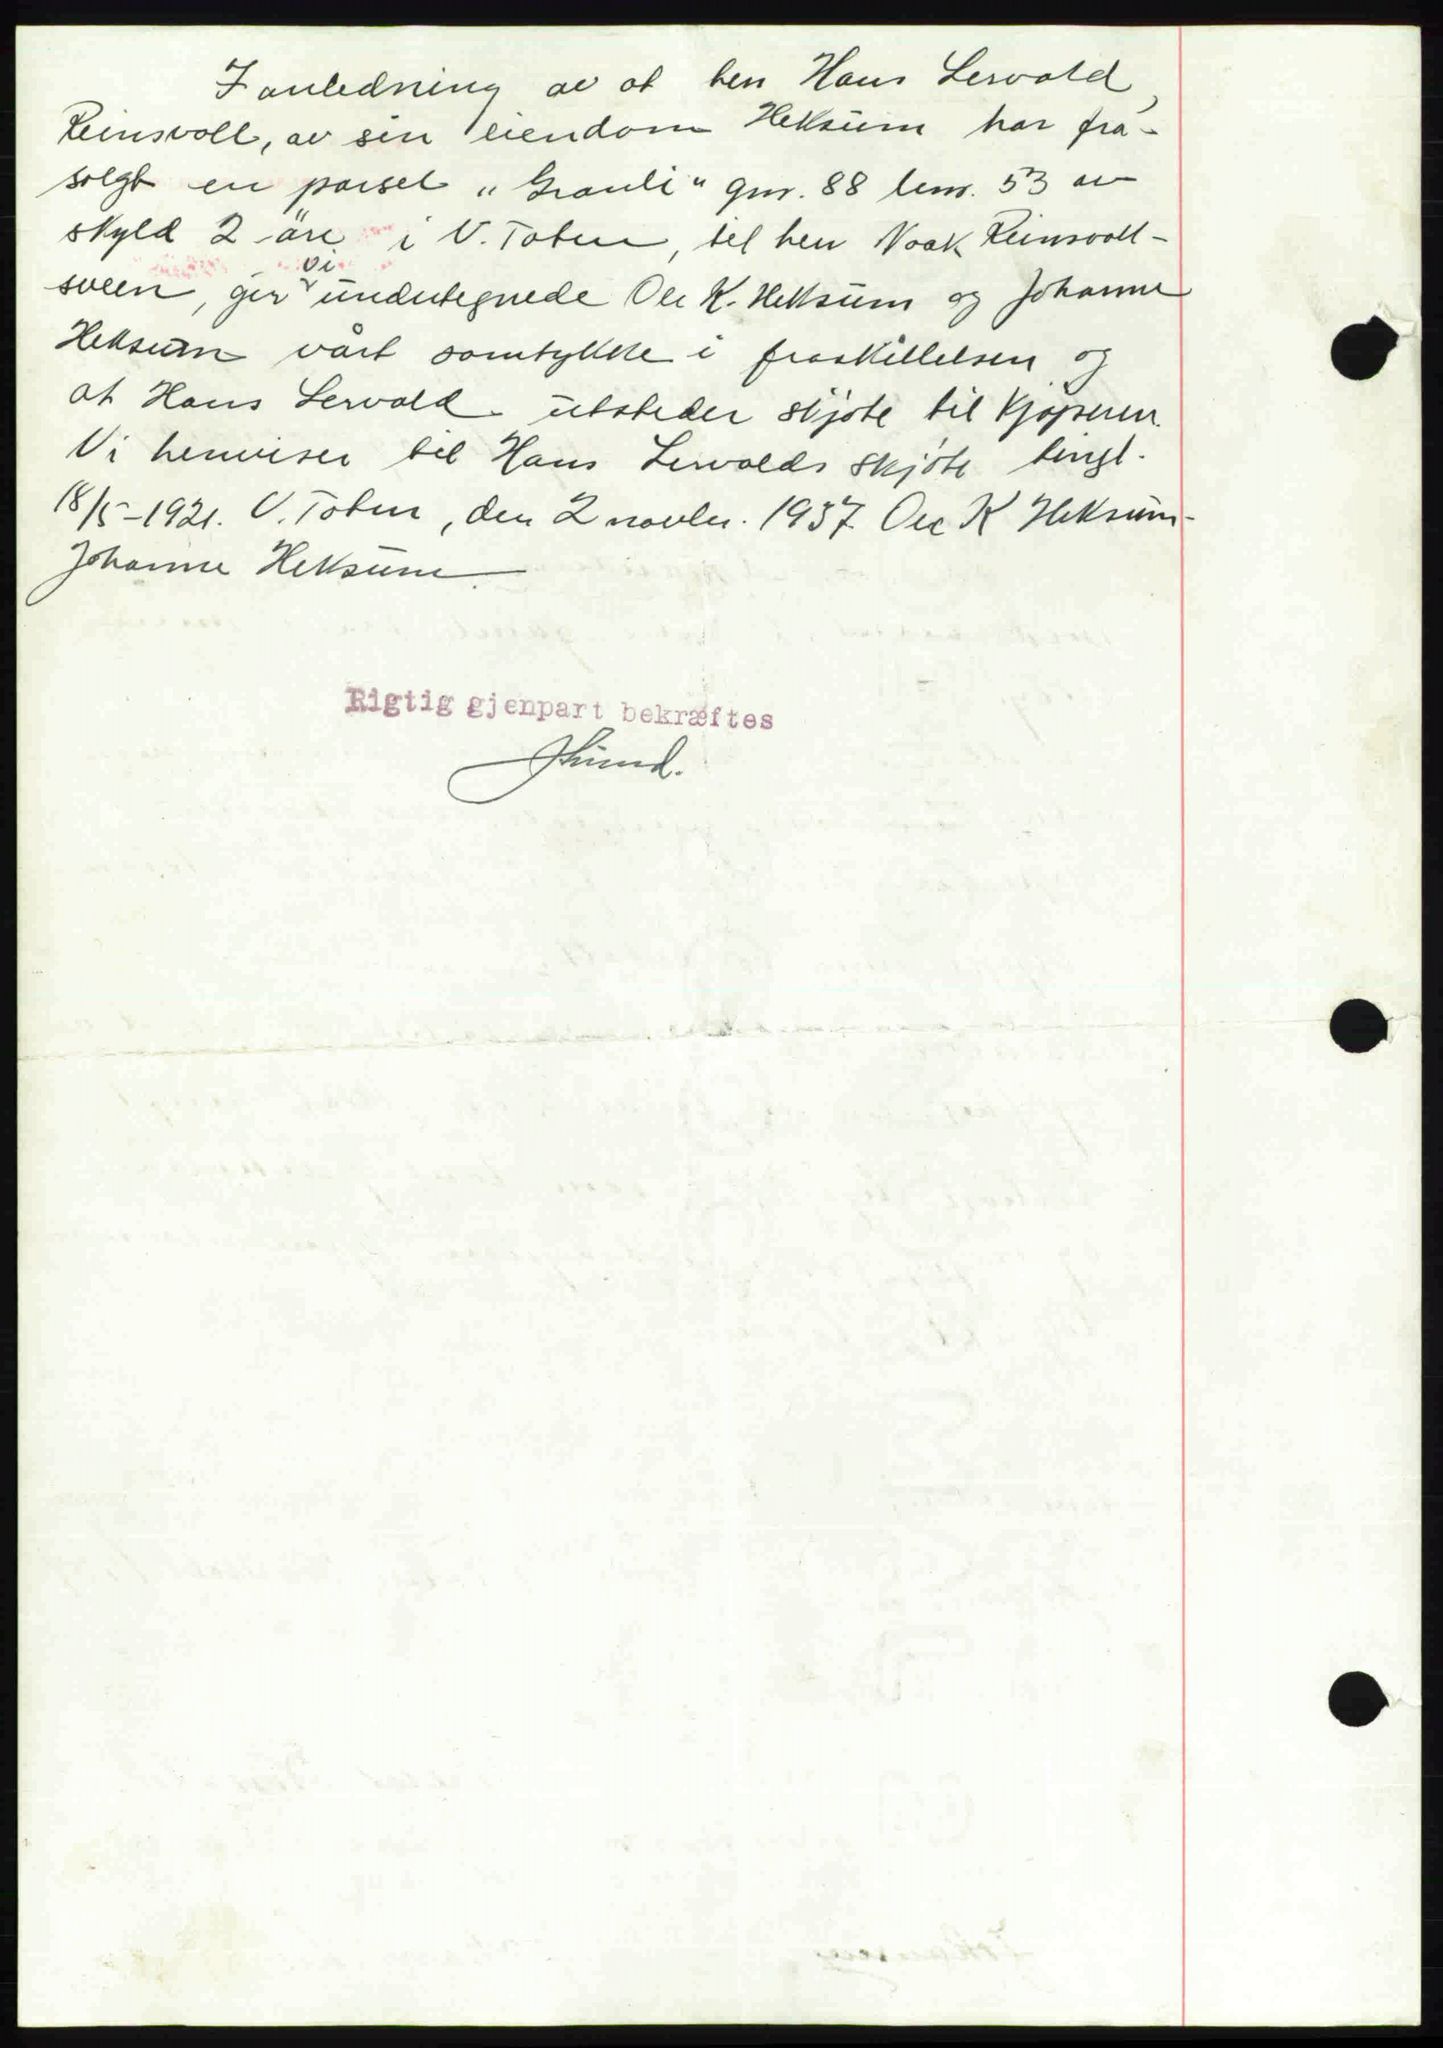 I anledning av at herr Hans Lervold,
Reinsvoll, av sin eiendom Heksum har fra-
solgt en parsel „Granli" gnr. 88 bnr. 53 av
skyld 2 øre i V. Toten, til herr Noak Reinsvoll-
sveen, gir vi undertegnede Ole K. Heksum og Johanne
Heksum vårt samtykke i fraskillelsen og
at Hans Lervold utsteder skjøte til kjøperen.
Vi henviser til Hans Lervolds skjøte tingl.
18/5-1921. V. Toten, den 2 novbr. 1937. Ole K Heksum-
Johanne Heksum
Rigtig gjenpart bekræftes